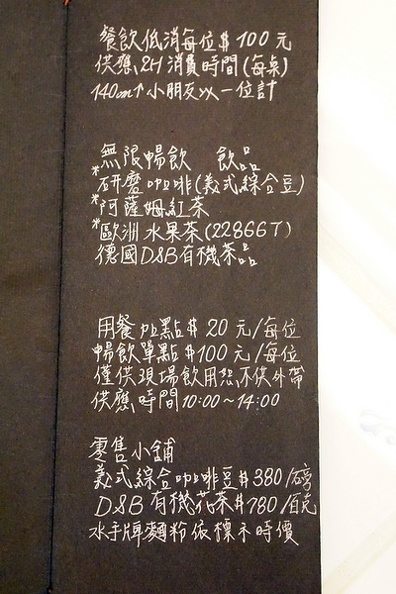 餐飲低消每位$100元
供應2H消費時間(每桌)
140cm↑小朋友以一位計
無限暢飲 飲品
*研磨咖啡(美式綜合豆)
*阿薩姆紅茶
*歐洲水果茶(22866T)
德國D&B有機茶品
用餐加點$20元/每位
暢飲單點$100元/每位
僅供現場飲用恕不供外帶
供應時間10:00~14:00
零售小舖
美式綜合咖啡豆$380/磅
D&B有機花茶$780/百克
水手牌麵粉依標示時價